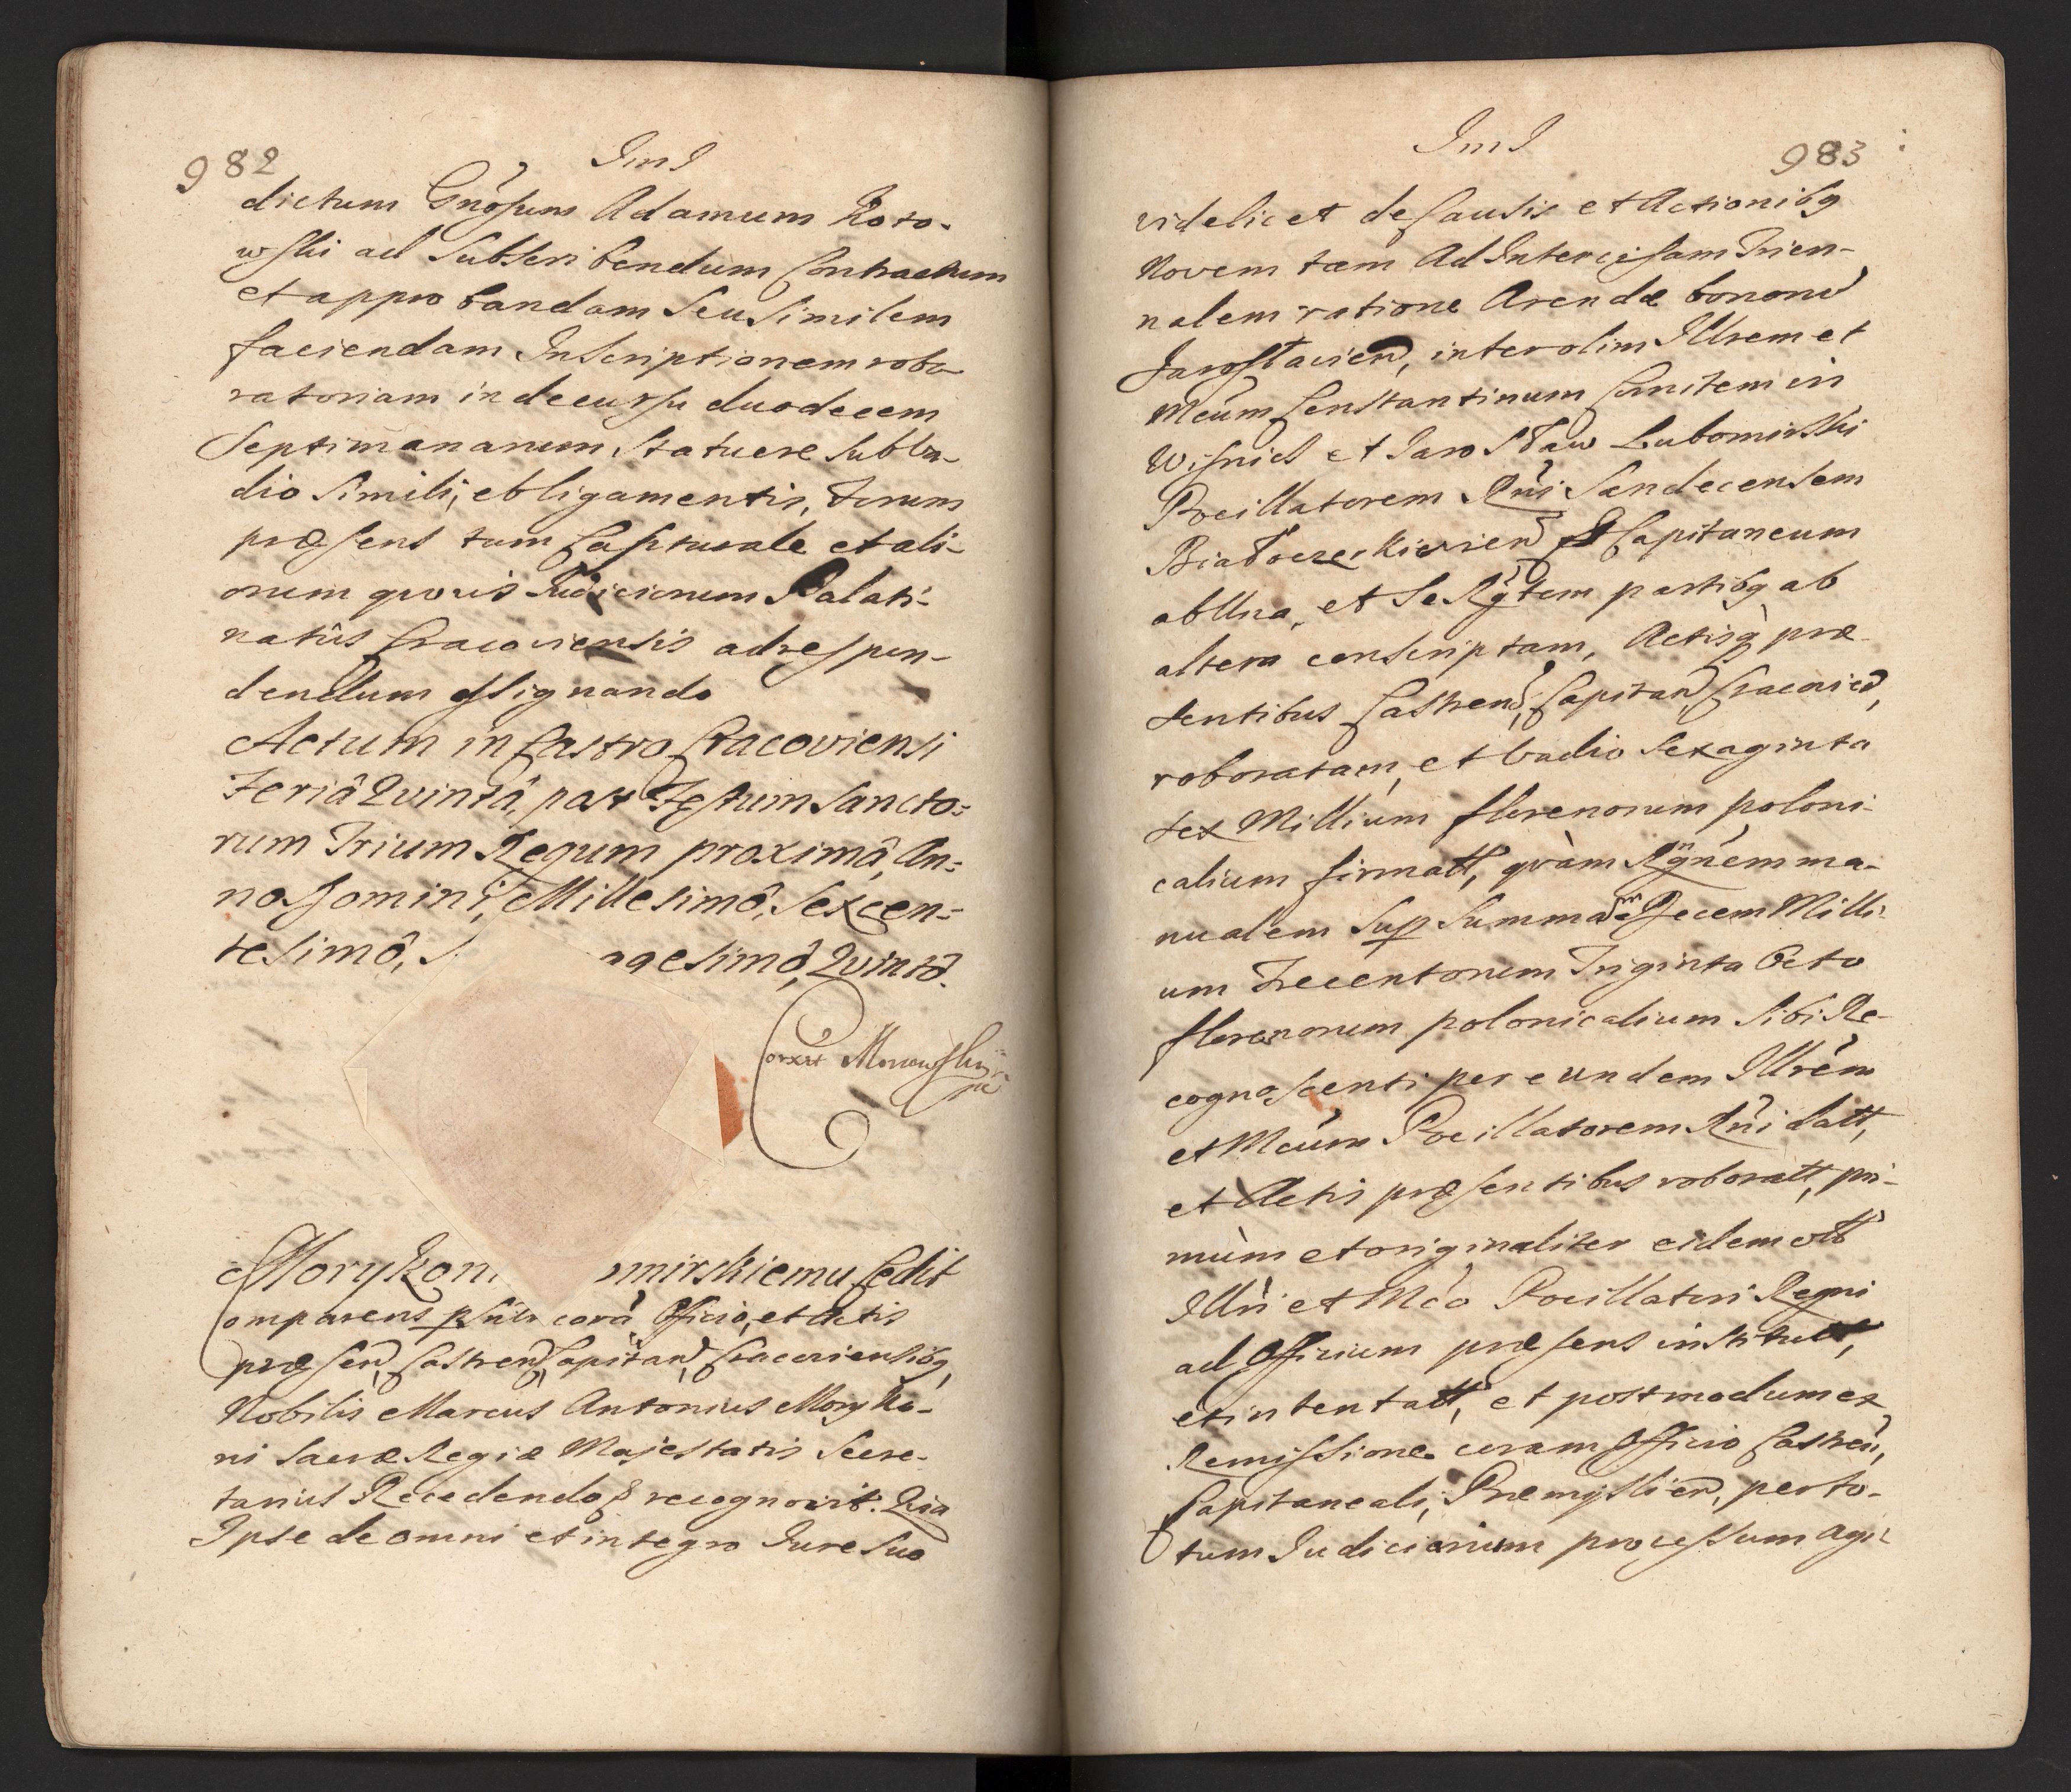 982
ImJ
dictum Gnõsum Adamum Roto-
wski ad Subscribendum Contractum
et approbandam Seu Similem
faciendam Inscriptionem robo
ratoriam in decursu duodecem
Septimanarum, Statuere sub Va-
dio Simili, obligamentis, Forum
præsens tum Capturale et ali-
orum quouis Judiciorum Palati-
natûs Cracouiensis ad respon-
dendum assignando
Actum in Castro Cracoviensi
Feriâ Qvintâ, post Festum Sancto=
rum Trium Regum proximâ, An=
no Domini, Millesimô, Sexcen=
tesimô, agesimô, Qvintô.
Morykoni mirskiemu Cedit
Comparens psnlr corã Officio, et Actis
præsen, Castren, Capitan, Cracouiensibq,
Nobilis Marcus Antonius Moryko-
ni Sacræ Regiæ Majestatis Secre-
tarius Recedendo & recognovit. Qia
Ipse de omni et integro Jure Suo
ImJ
983
videlicet de Causis et Actionibq
Novem tam Ad Intercisam Trien-
nalem ratione Arendæ bonorum
Jarosłavien, inter olim Illrem et
Mcum Constantinum Comitem in
Wisnicz et Jarosław Lubomirski
Pocillatorem Rni Sandecensem
Białocerkiewien & Capitaneum
ab Una, et Se Rgtem partibq ab
altera conscriptam, Actisq præ-
sentibus Castren, Capitan, Cracovien,
roboratam, et Vadio Sexaginta
sex Millium florenorum poloni-
calium firmatt, qvàm Rgnem ma-
nualem Sup Summam Decem Milli-
um Trecentorum Triginta Octo
florenorum polonicalium Sibi Re-
cognoscenti per eundem Illrem
et Mcum Pocillatorem Rni datt,
et Actis præsentibus roboratt, pri-
mùm et originaliter eidem olb
Illri et Mco Pocillatori Regni
ad Officium præsens institutt,
et intentatt, et postmodum ex
Remissione coram Officio Castren,
Capitaneali, Præmyslien, per to-
tum Judiciarium processum agi-